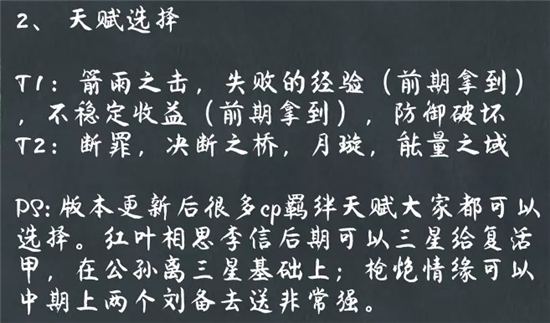 2、天赋选择
T1：箭雨之击，失败的经验（前期拿到）
，不稳定收益（前期拿到），防御破坏
T2：断罪，决断之桥，月璇，能量之域
PS:版本更新后很多cp羁绊天赋大家都可以
选择。红叶相思李信后期可以三星给复活
甲，在公孙离三星基础上；枪炮情缘可以
中期上两个刘备去送非常强。